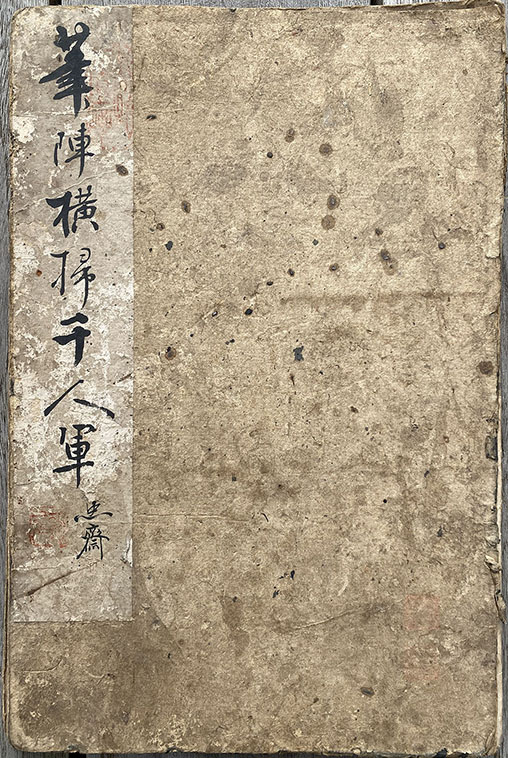 筆陣橫掃千人軍
齋